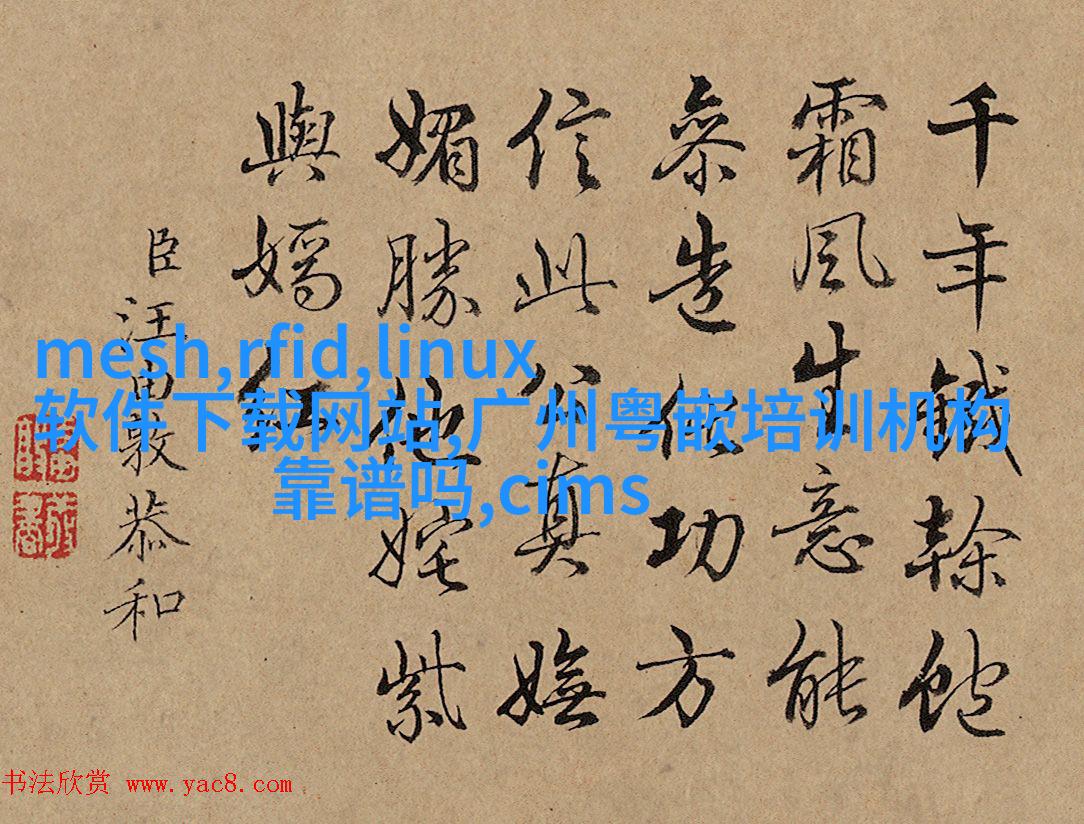 千年鐵幹飽
霜風生意能
參造化功方
信此公真嫵
媚勝他姹紫
與嫣紅
臣汪由敦恭和
mesh,rfid,linux
软件下载网站,广州粤嵌培训机构
靠谱吗,cims
书法欣赏 www.yac8.com